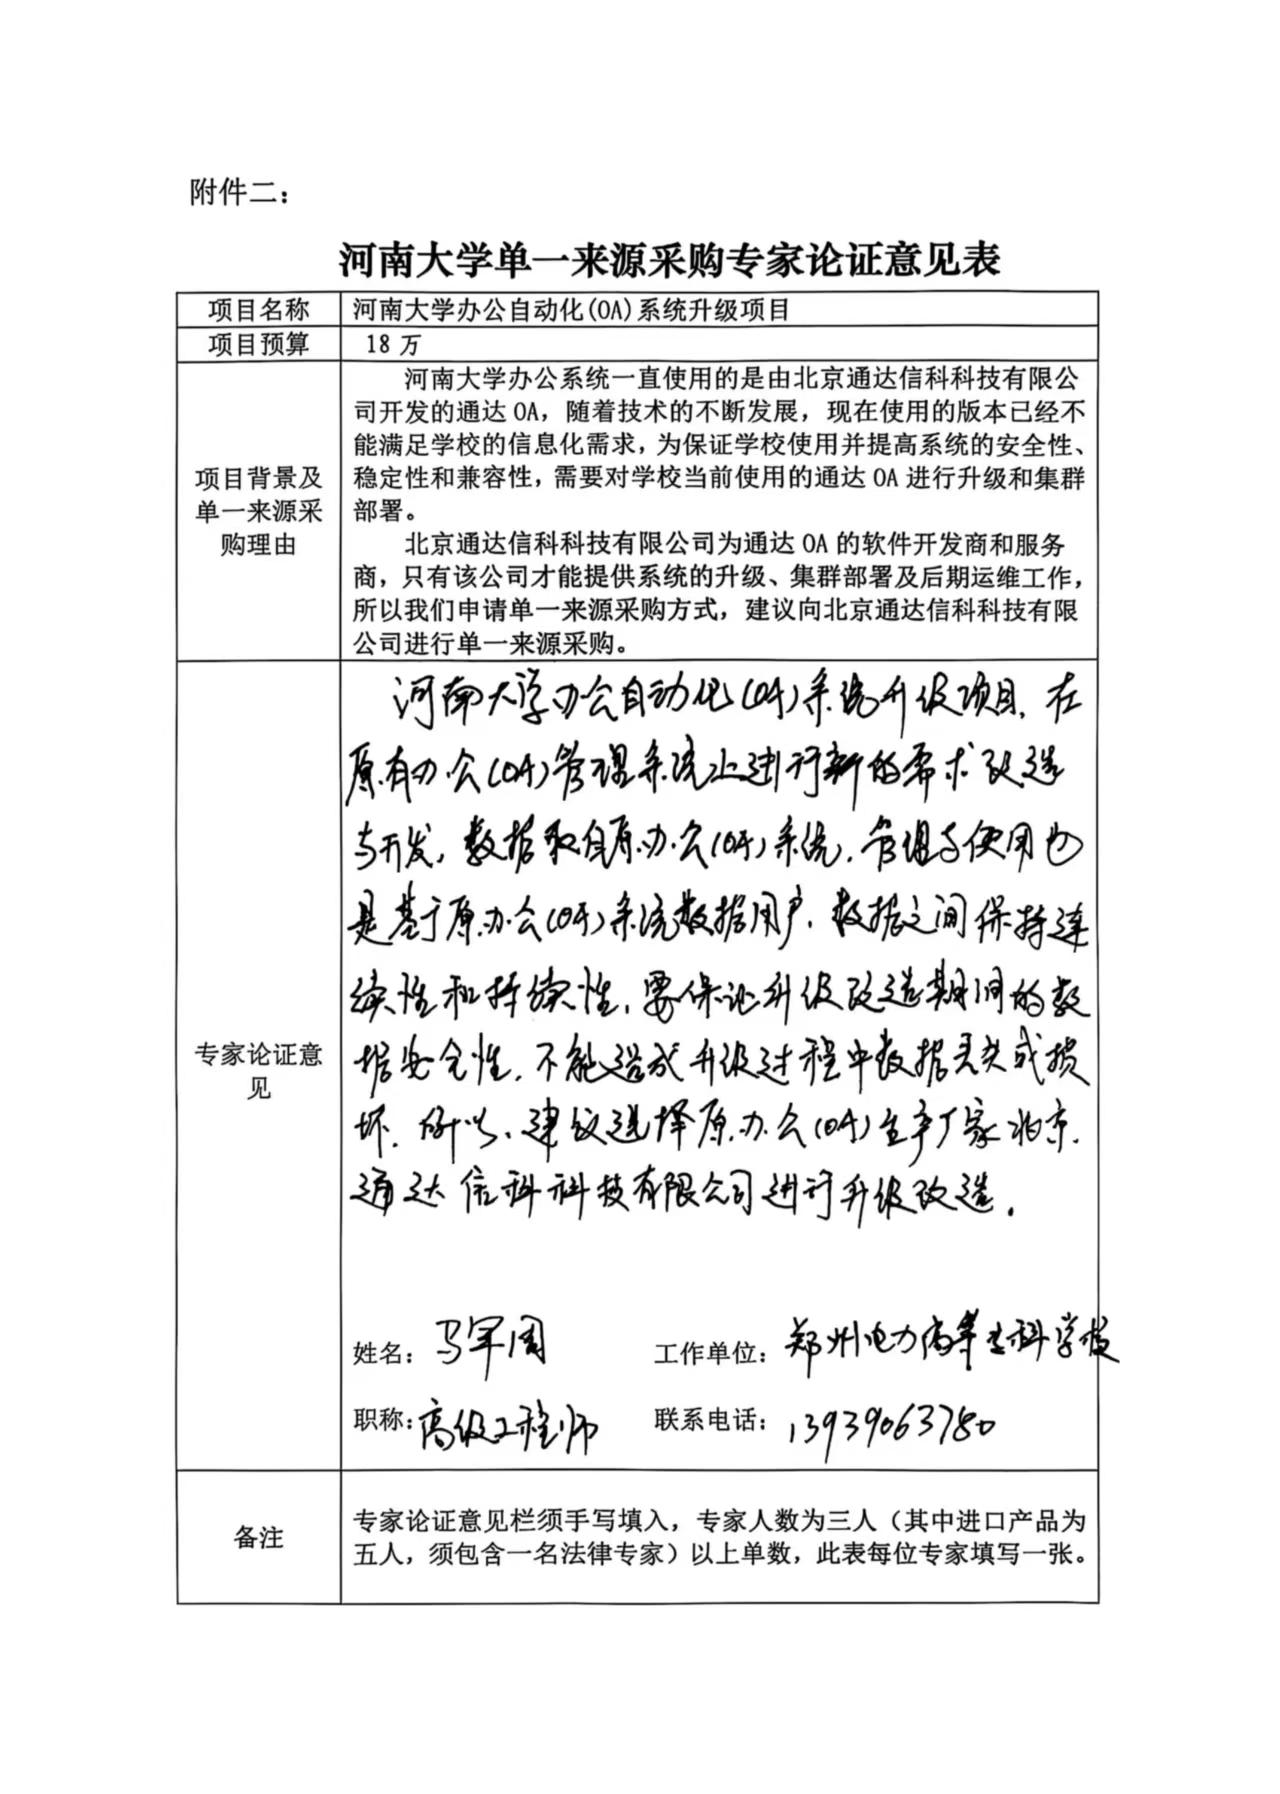 附件二：
河南大学单一来源采购专家论证意见表
项目名称
河南大学办公自动化(OA)系统升级项目
项目预算
18 万
项目背景及
单一来源采
购理由
河南大学办公系统一直使用的是由北京通达信科科技有限公
司开发的通达 OA，随着技术的不断发展，现在使用的版本已经不
能满足学校的信息化需求，为保证学校使用并提高系统的安全性、
稳定性和兼容性，需要对学校当前使用的通达 OA 进行升级和集群
部署。
北京通达信科科技有限公司为通达 OA 的软件开发商和服务
商，只有该公司才能提供系统的升级、集群部署及后期运维工作，
所以我们申请单一来源采购方式，建议向北京通达信科科技有限
公司进行单一来源采购。
专家论证意
见
河南大学办公自动化(OA)系统升级项目，在
原有办公(OA)管理系统上进行新的需求改造
与开发，数据取自原办公(OA)系统，管理与使用也
是基于原办公(OA)系统数据用户，数据之间保持连
续性和持续性，要保证升级改造期间的数
据安全性，不能造成升级过程中数据丢失或损
坏，所以，建议选择原办公(OA)生产厂家北京
通达信科科技有限公司进行升级改造。
姓名：马军周
工作单位：郑州电力高等专科学校
职称：高级工程师
联系电话：13939063780
备注
专家论证意见栏须手写填入，专家人数为三人（其中进口产品为
五人，须包含一名法律专家）以上单数，此表每位专家填写一张。